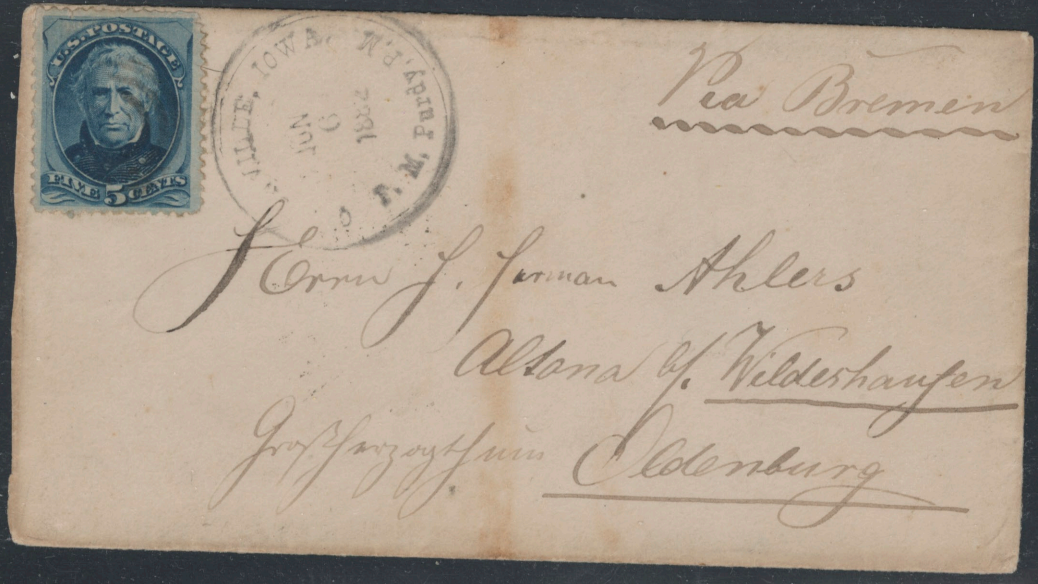 U.S. POSTAGE
FIVE 5 CENTS
VILLE, IOWA.
J. M. Purdy, P.M.
JUN
9
1882
Via Bremen
Herrn J. Herman Ahlers
Altona b/. Wildeshausen
Großherzogthum Oldenburg